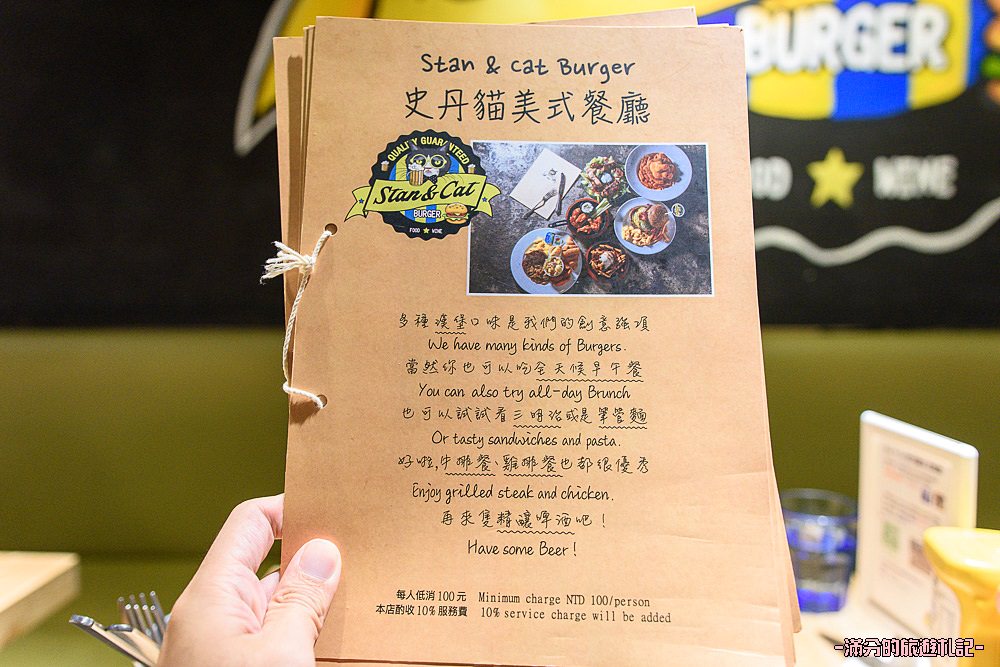 BURGER
FOOD WINE
Stan & Cat Burger
史丹貓美式餐廳
QUALITY GUARANTEED
Stan & Cat
BURGER
FOOD ★ WINE
多種漢堡口味是我們的創意強項
We have many kinds of Burgers.
當然你也可以吃全天候早午餐
You can also try all-day Brunch
也可以試試看三明治或是筆管麵
Or tasty sandwiches and pasta.
好啦,牛排餐、雞排餐也都很優秀
Enjoy grilled steak and chicken.
再來隻精釀啤酒吧!
Have some Beer!
每人低消100元 Minimum charge NTD 100/person
本店酌收10%服務費 10% service charge will be added
-滿分的旅遊札記-